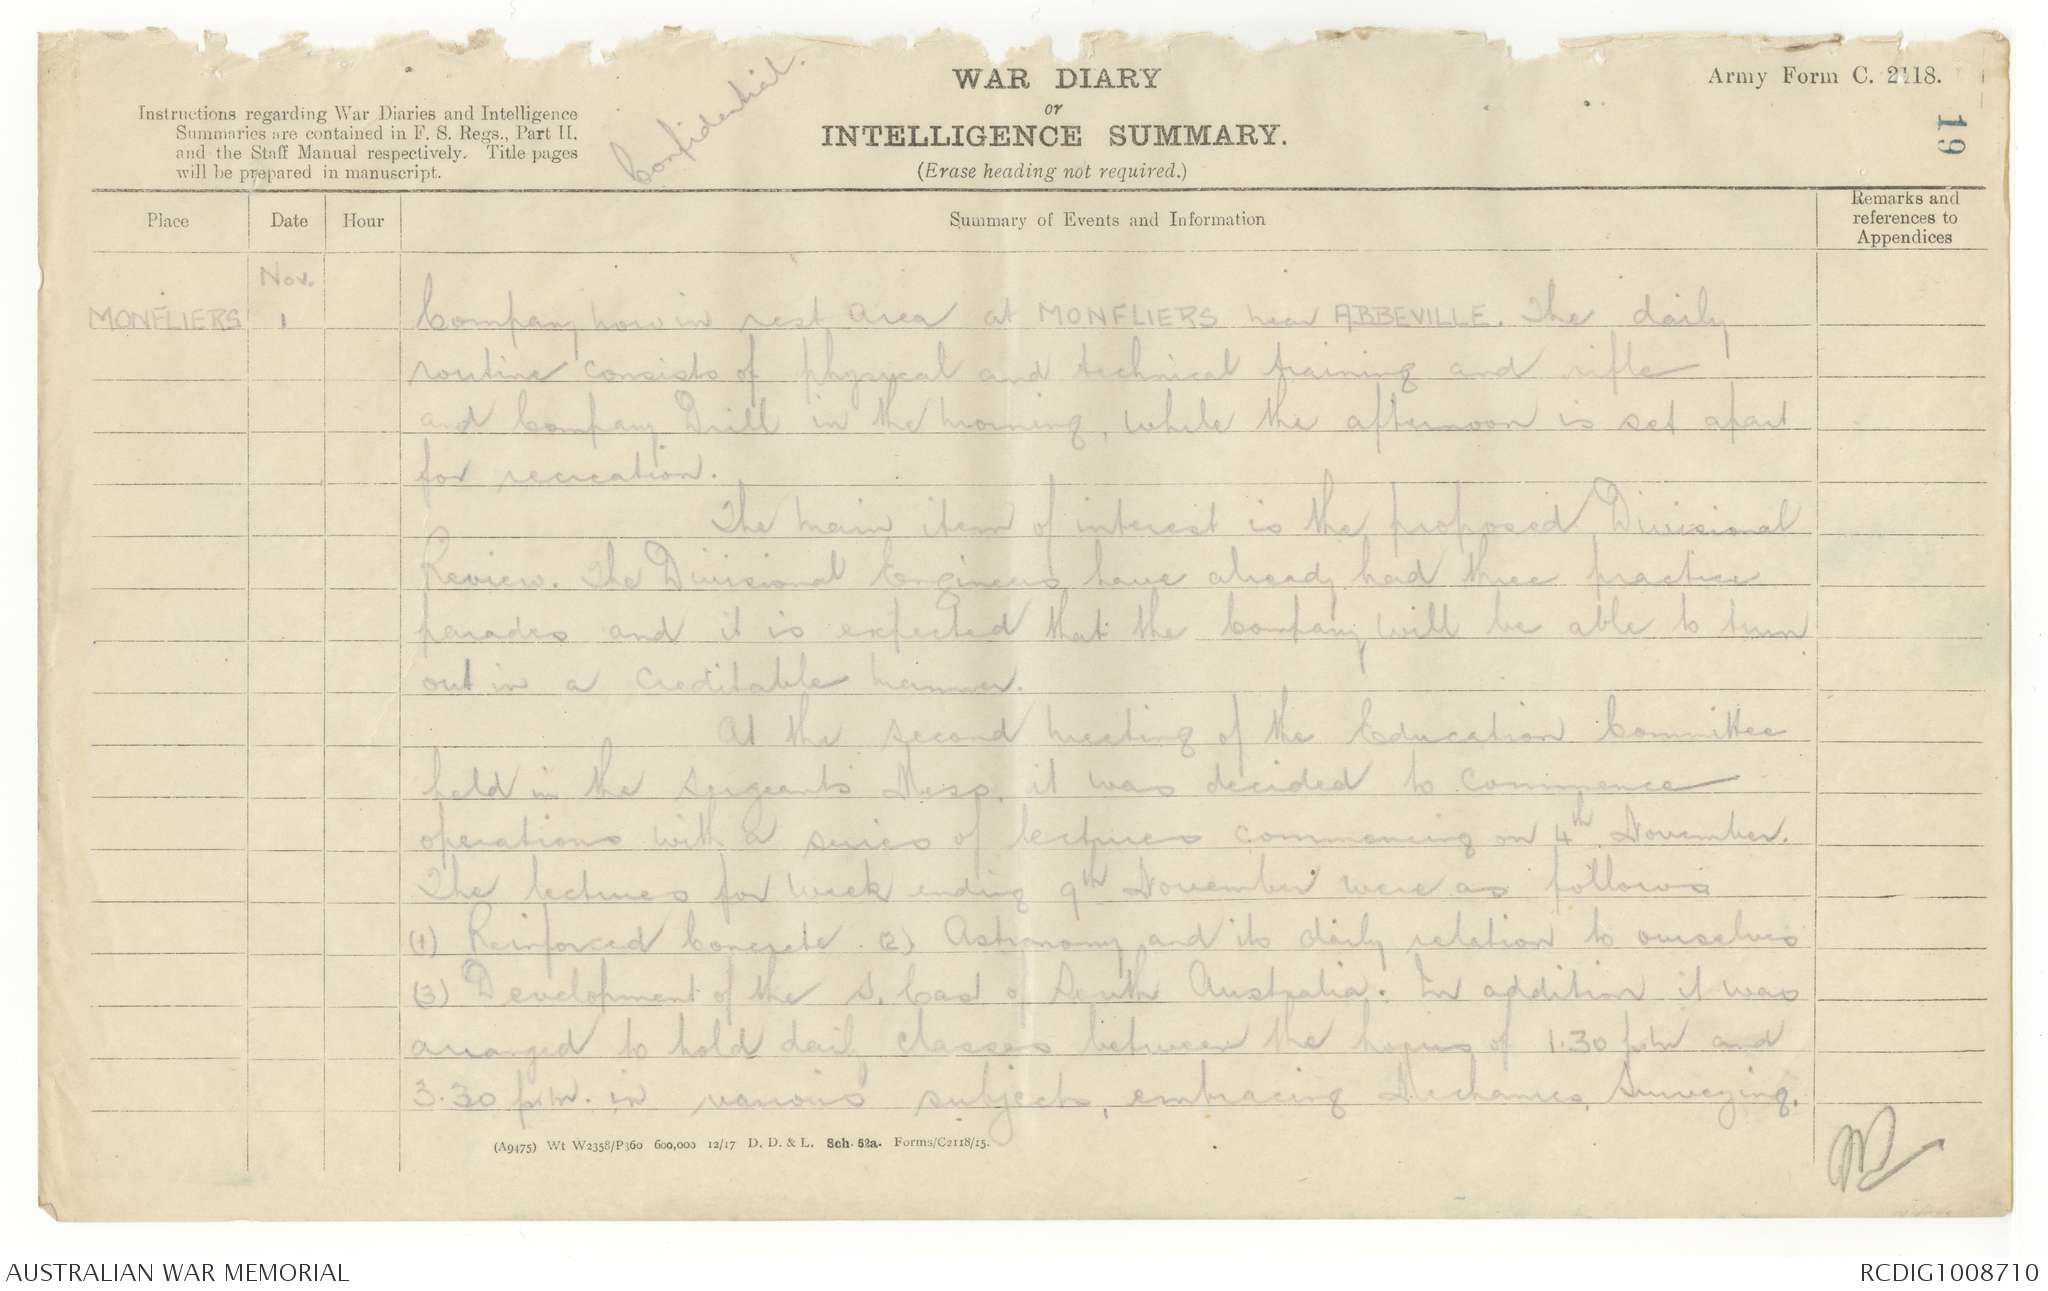 Confidential.
WAR DIARY
or
INTELLIGENCE SUMMARY.
(Erase heading not required.)
Army Form C. 2118.
19
Instructions regarding War Diaries and Intelligence
Summaries are contained in F. S. Regs., Part II.
and the Staff Manual respectively. Title pages
will be prepared in manuscript.
Place
Date
Hour
Summary of Events and Information
Remarks and
references to
Appendices
Nov.
MONFLIERS 1 Company now in rest area at MONFLIERS near ABBEVILLE. The daily
routine consists of physical and technical training and rifle
and Company Drill in the morning, while the afternoon is set apart
for recreation.
The main item of interest is the proposed Divisional
Review. The Divisional Engineers have already had three practice
parades and it is expected that the Company will be able to turn
out in a creditable manner.
At the second meeting of the Education Committee
held in the Sergeants Mess, it was decided to commence
operations with a series of lectures commencing on 4th November.
The lectures for week ending 9th November were as follows
(1) Reinforced Concrete. (2) Astronomy and its daily relation to ourselves
(3) Development of the S. East of South Australia. In addition it was
arranged to hold daily classes between the hours of 1.30 pm and
3.30 p.m. in various subjects, embracing Mechanics, Surveying,
(A9475) Wt W2358/P360 600,000 12/17 D. D. & L. Sch. 52a. Forms/C2118/15.
AUSTRALIAN WAR MEMORIAL
RCDIG1008710